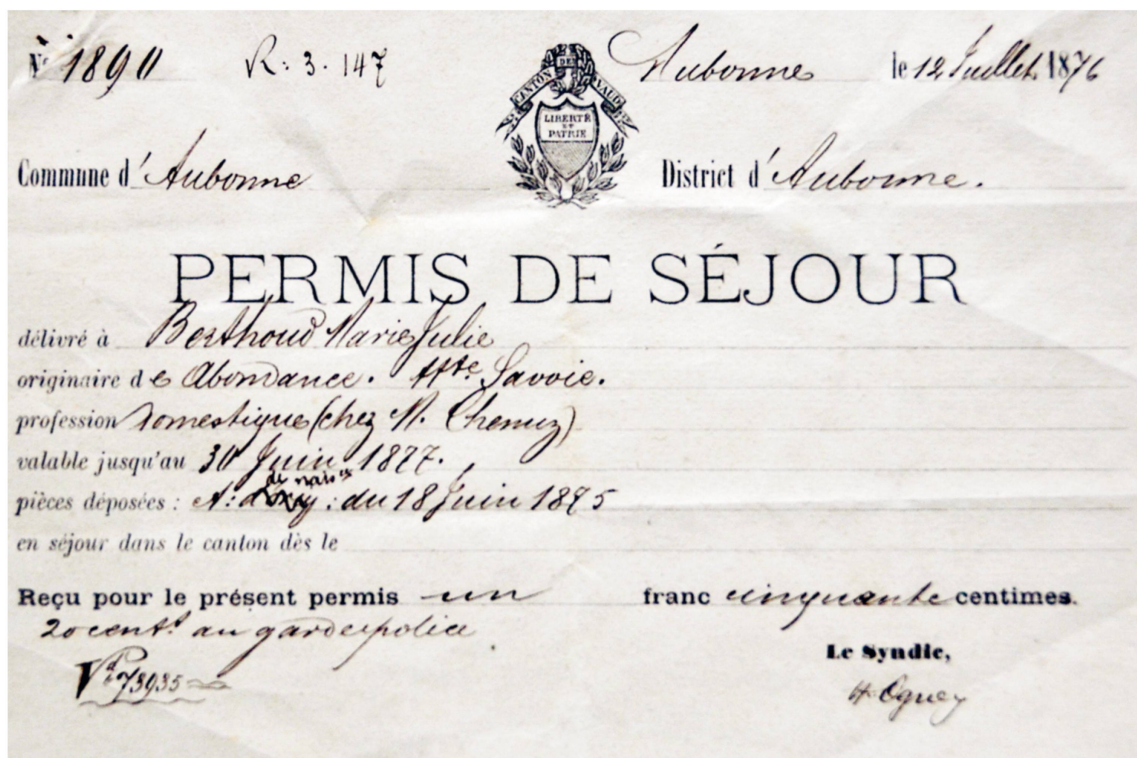 N° 1890 R: 3. 147 Aubonne le 12 Juillet 1876
CANTON DE VAUD
LIBERTÉ
ET
PATRIE
Commune d'Aubonne District d'Aubonne.
PERMIS DE SÉJOUR
délivré à Berthoud Marie Julie
originaire de Abondance. Hte Savoie.
profession Domestique (chez M. Chemuz)
valable jusqu'au 30 Juin 1877.
de naisce
pièces déposées : A: : du 18 Juin 1875
en séjour dans le canton dès le
Reçu pour le présent permis un franc cinquante centimes.
20 cent.s au garde police
Le Syndic,